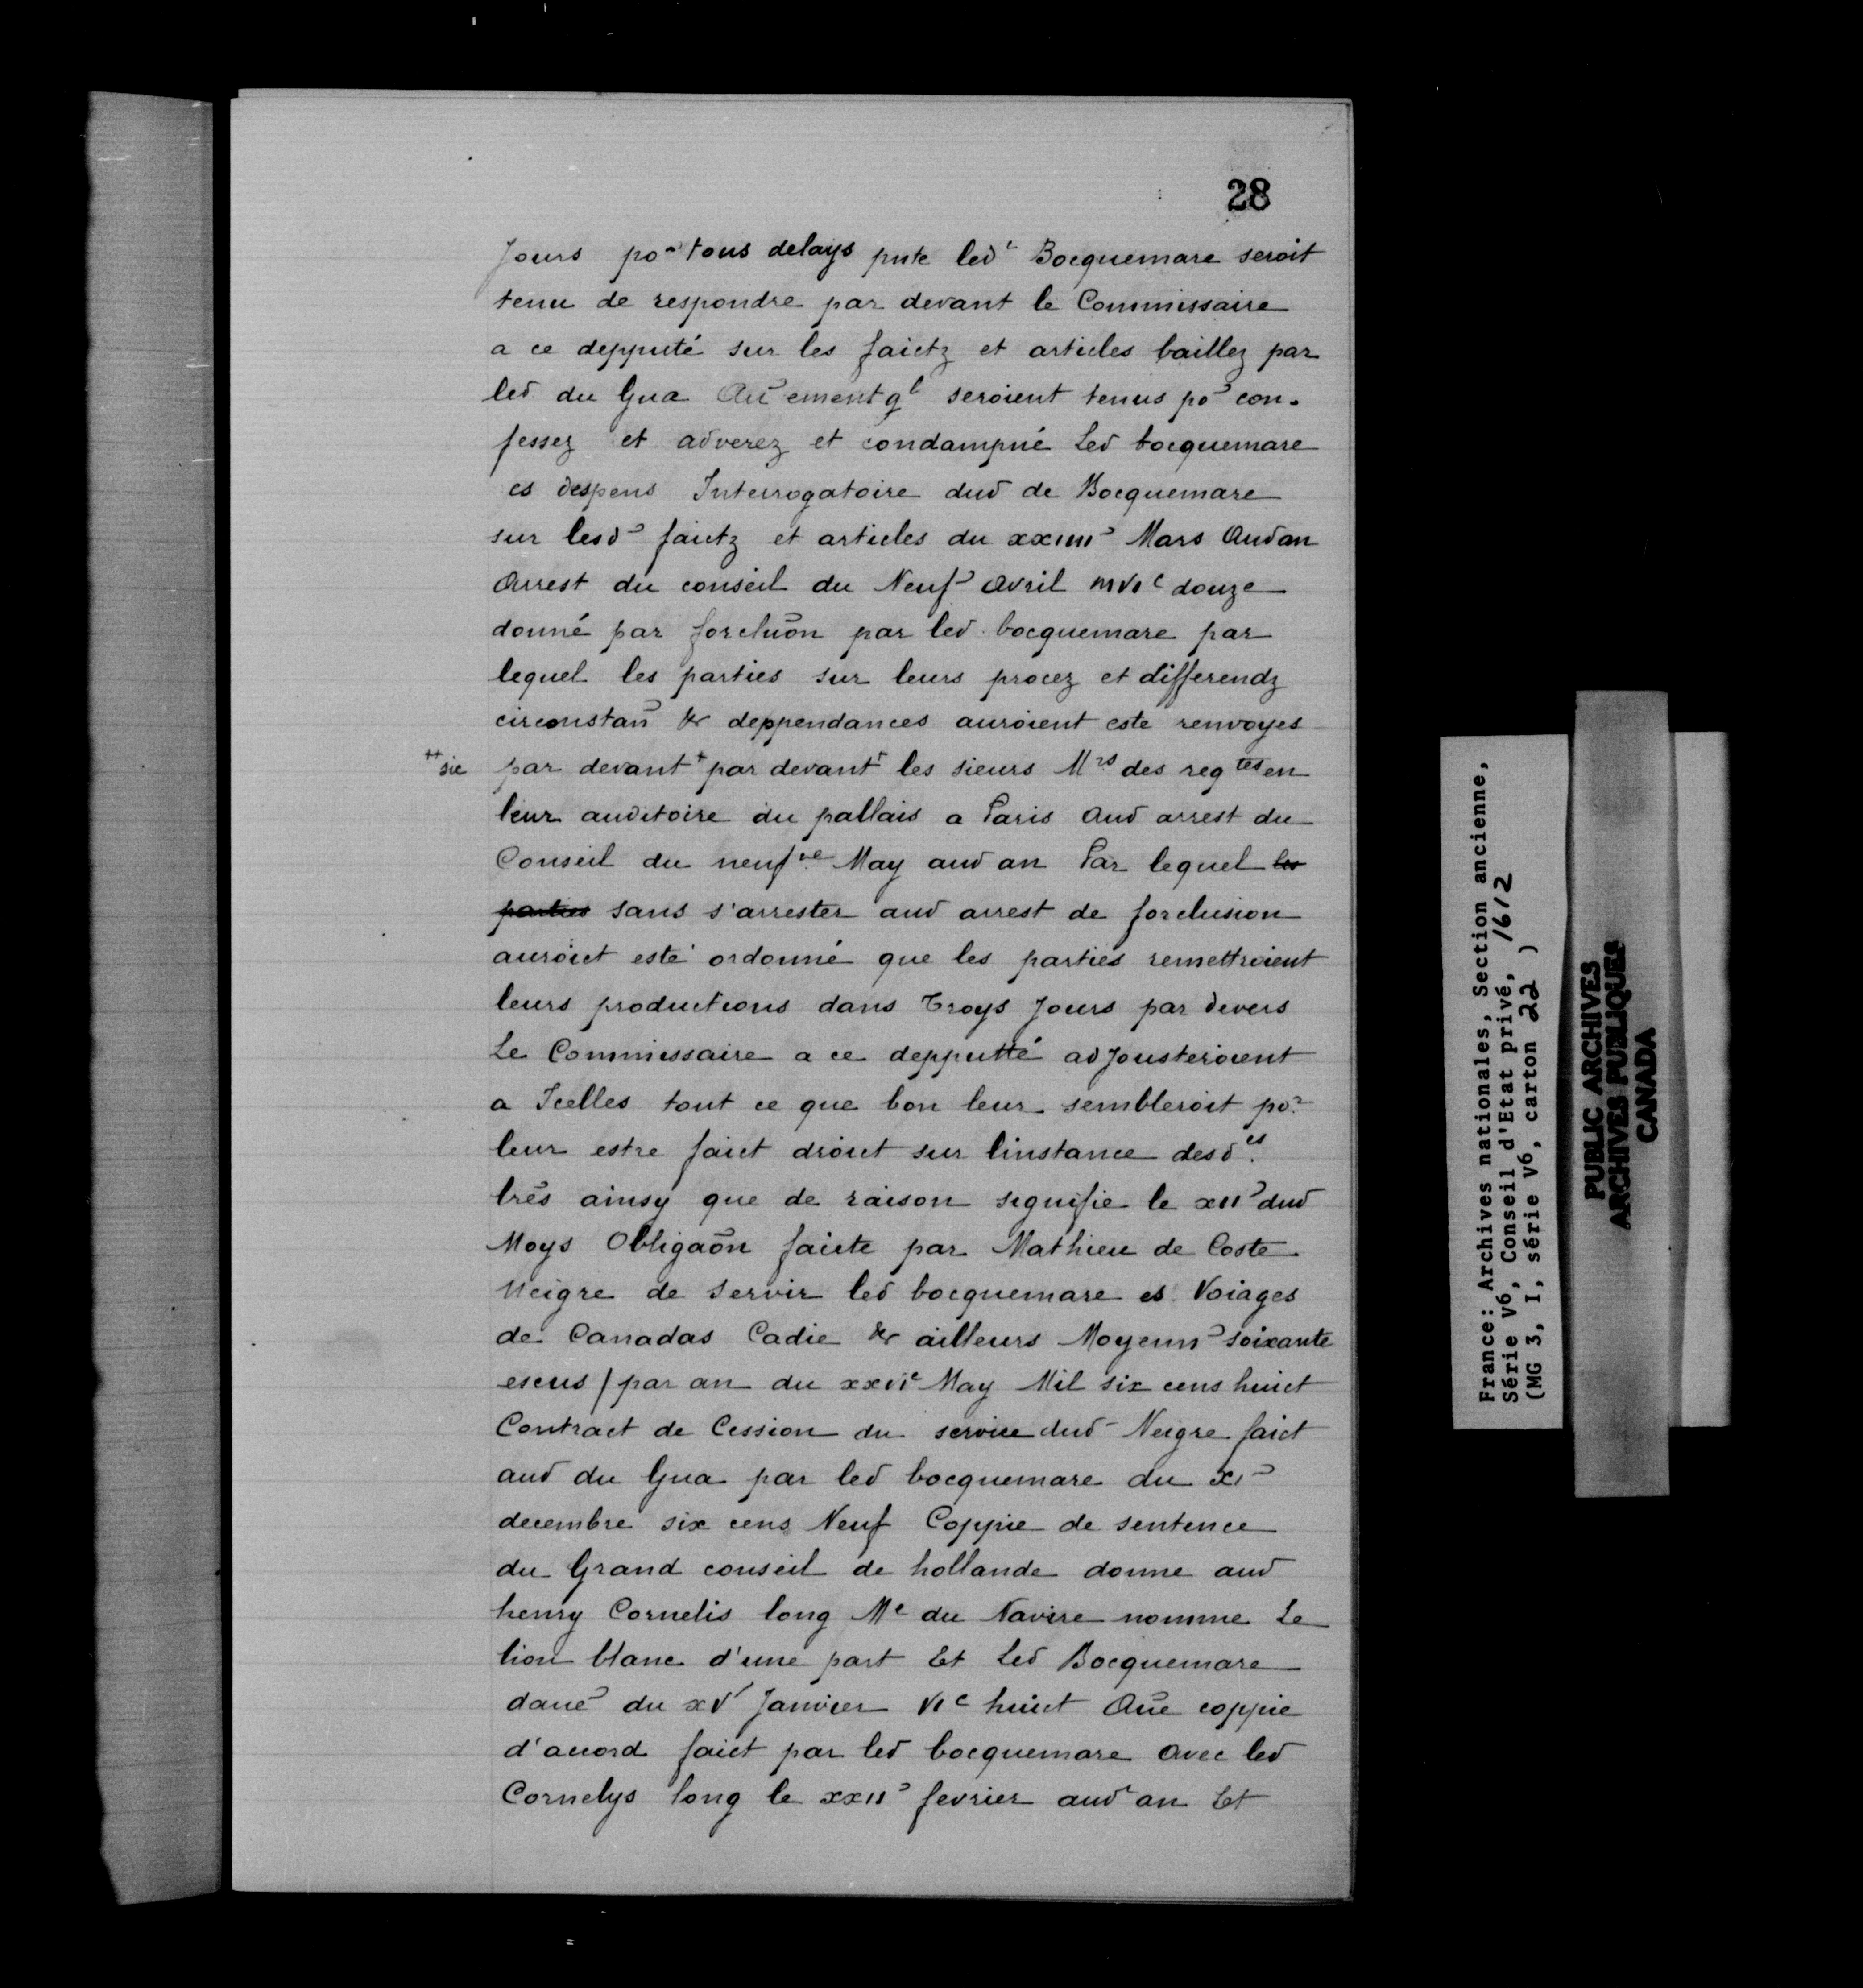 28
Jours po~ tous delays pnte led^t Bocquemare seroit
tenu de respondre par devant le Commissaire
a ce depputé sur les faictz et articles baillez par
led du Gua Au~ement q^l seroient tenus po~ con-
fessez et adverez et condampné Led bocquemare
es despens Interrogatoire dud de Bocquemare
sur lesd~ faictz et articles du xxiiii~ Mars Aud an
Arrest du conseil du Neuf~ Avril mvi^c douze
donné par forcluõn par led. bocquemare par
lequel les parties sur leurs procez et differendz
circonstañ & deppendances auroient este renvoyes
++ sic par devant + par devant + les sieurs M^rs des reg^tes en
leur auditoire du pallais a Paris Aud arrest du
Conseil du neuf^ve May aud an Par lequel les
parties sans s'arrester aud arrest de forclusion
auroict esté ordonné que les parties remettroient
leurs productions dans Troys Jours par devers
Le Commissaire a ce depputté adjousteroient
a Icelles tout ce que bon leur sembleroit po~
leur estre faict droict sur linstance desd^es
lrẽs ainsy que de raison signifie le xii~ dud
Moys Obligaõn faicte par Mathieu de Coste
Neigre de servir led bocquemare es Voiages
de Canadas Cadie & ailleurs Moyenn~ soixante
escus / par an du xxvi^e May Mil six cens huict
Contract de Cession du service dud Neigre faict
aud du Gua par led bocquemare du xi~
decembre six cens Neuf Coppie de sentence
du Grand conseil de hollande donne aud
henry Cornelis long M^e du Navire nomme Le
lion blanc d'une part Et Led Bocquemare
daue~ du xv Janvier vi^c huict Auẽ coppie
d'acord faict par led bocquemare avec led
Cornelys long le xxii~ fevrier aud an Et
France: Archives nationales, Section ancienne,
Série V6, Conseil d'Etat privé, 1612
(MG 3, I, série V6, carton 22 )
PUBLIC ARCHIVES
ARCHIVES PUBLIQUES
CANADA